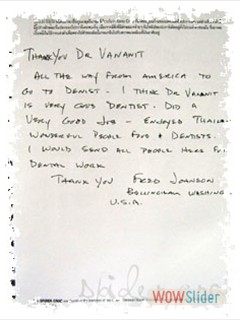 THANKYOU DR VANANIT
ALL THE WAY FROM AMERICA TO
GO TO DENIST. I THINK DR VANANIT
IS VERY GOOD DENTIST. DID A
VERY GOOD JOB - ENJOYED THAILAND
WONDERFUL PEOPLE FOOD & DENTISTS.
I WOULD SEND ALL PEOPLE HERE FOR
DENTAL WORK
THANK YOU FRED JOHNSON
BELLINGHAM WASHING.
U.S.A.
WOWSlider